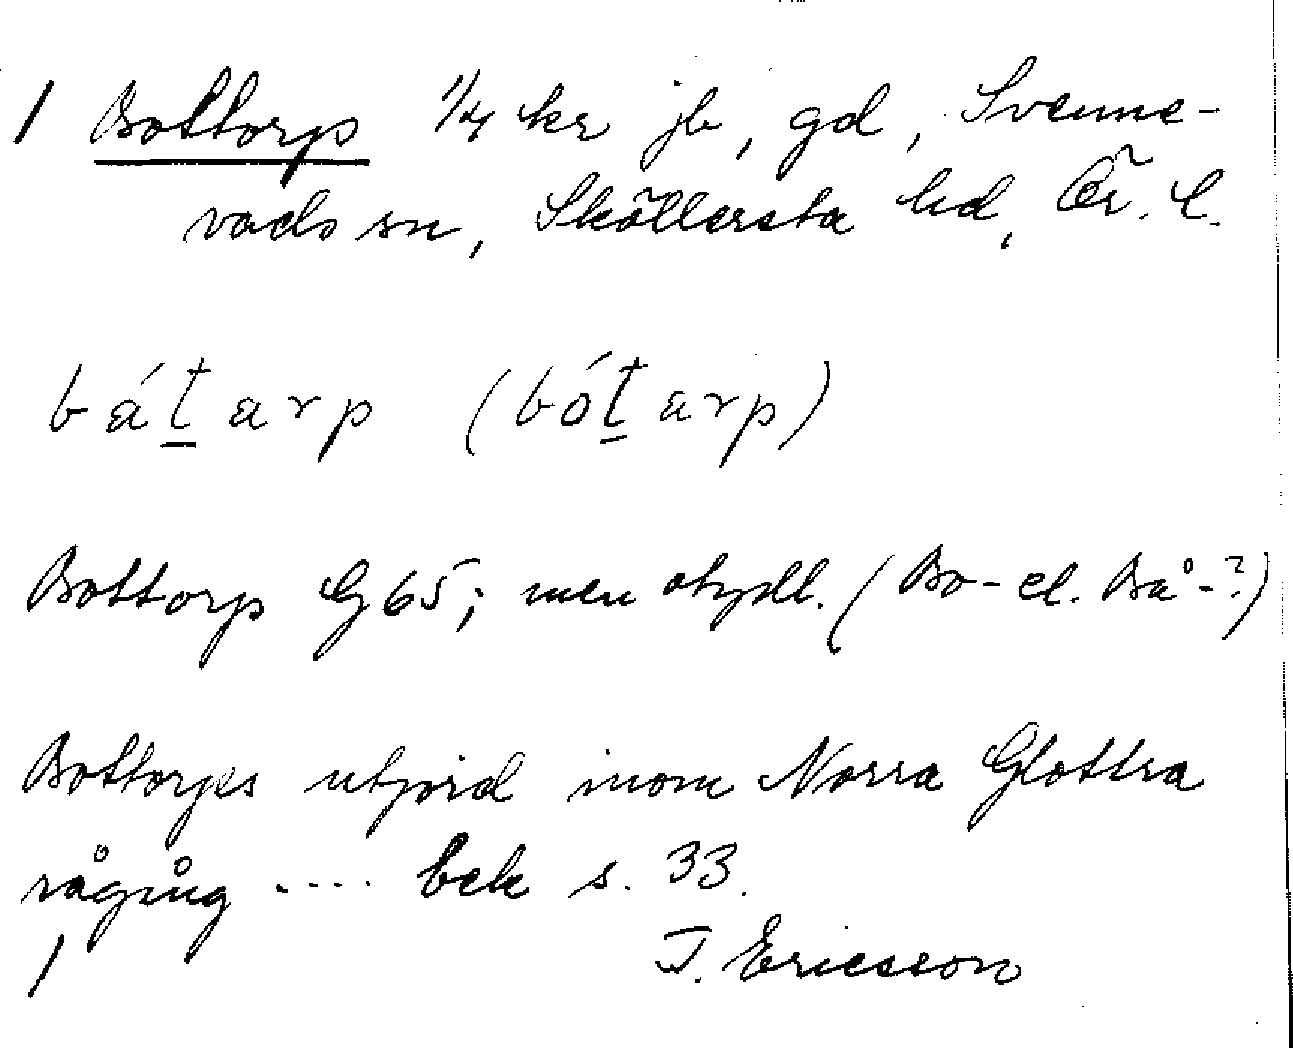 1 Bottorp 1/4 kr jb, gd, Svenne-
vads sn, Sköllersta hd, Ör. l.
bát̲arp (bót̲arp)
Bottorp G 65; men otydl. (Bo- el. Bå-?)
Bottorps utjord inom Norra Glottra
rågång .... bek s. 33.
J. Ericsson